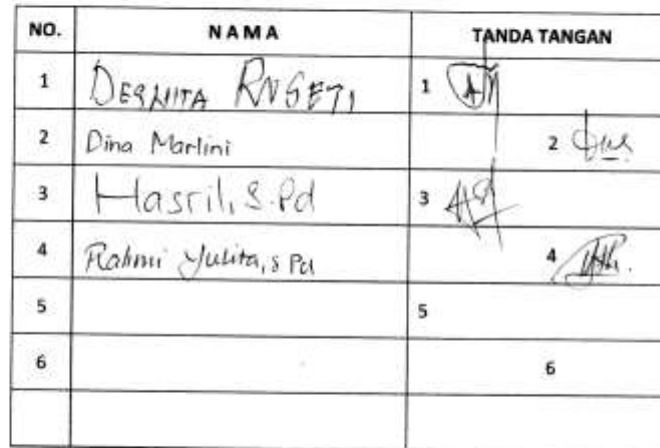 NO. NAMA TANDA TANGAN
1 DERNITA 1
2 Dina Marlini 2
3 Hasril, S.Pd 3
4 Rahmi Yulita, S Pd 4
5 5
6 6